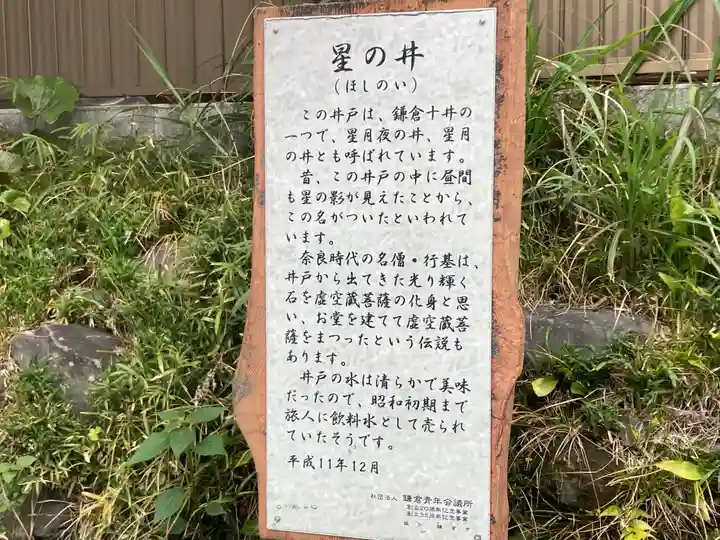 星の井
(ほしのい)
この井戸は、鎌倉十井の
一つで、星月夜の井、星月
の井とも呼ばれています。
昔、この井戸の中に昼間
も星の影が見えたことから、
この名がついたといわれて
います。
奈良時代の名僧・行基は、
井戸から出てきた光り輝く
石を虚空蔵菩薩の化身と思
い、お堂を建てて虚空蔵菩
薩をまつったという伝説も
あります。
井戸の水は清らかで美味
だったので、昭和初期まで
旅人に飲料水として売られ
ていたそうです。
平成11年12月
社団法人 鎌倉青年会議所
創立20周年記念事業
創立35周年記念事業